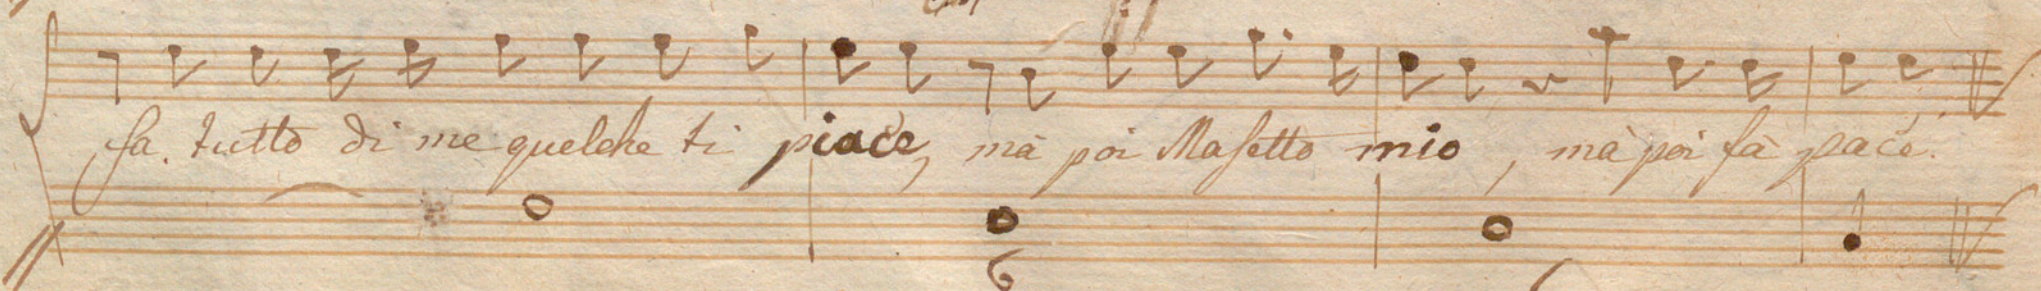 fa. tutto di me quelche ti piace, mà poi Masetto mio, mà poi fà pace.
6